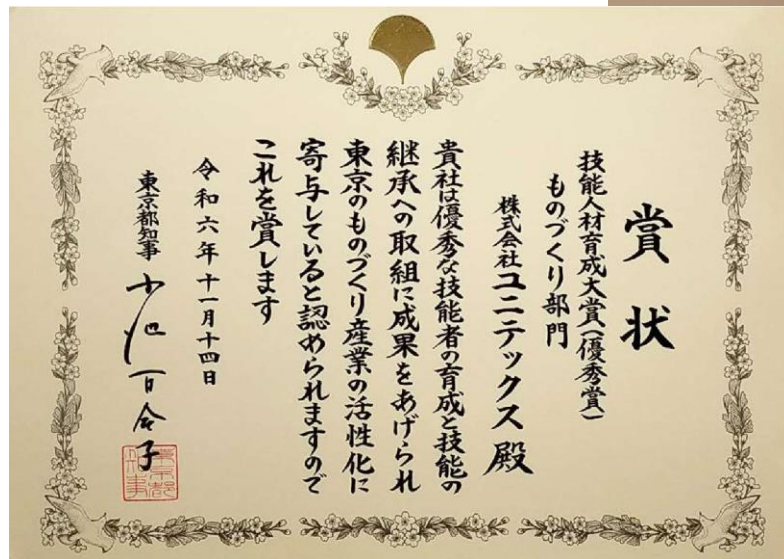 賞状
技能人材育成大賞(優秀賞)
ものづくり部門
株式会社ユニテックス殿
貴社は優秀な技能者の育成と技能の
継承への取組に成果をあげられ
東京のものづくり産業の活性化に
寄与していると認められますので
これを賞します
令和六年十一月十四日
東京都知事 小池百合子
東京都知事